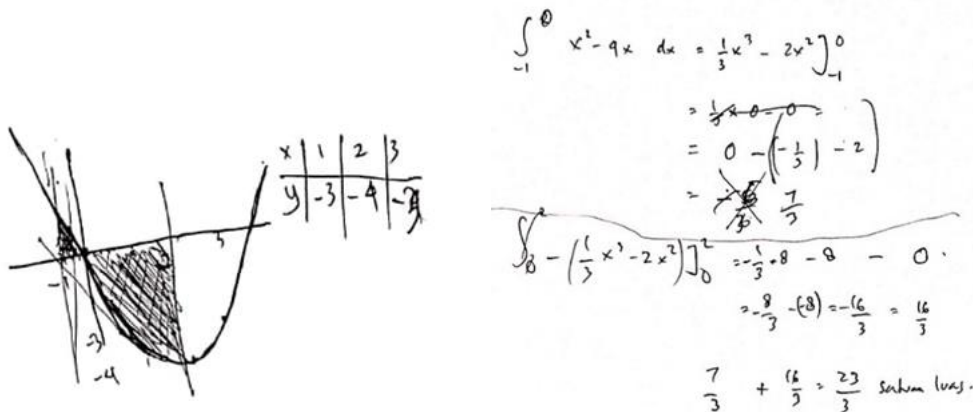 x | 1 | 2 | 3
y | -3 | -4 | -3
-1
-3
-4
∫₋₁⁰ x² - 4x dx = 1/3 x³ - 2x² ]₋₁⁰
= 0 - (-1/3) - 2)
= 7/3
∫₀² - (1/3 x³ - 2x²) ]₀² = -1/3 · 8 - 8 - 0 .
= -8/3 - (-8) = -16/3 = 16/3
7/3 + 16/3 = 23/3 satuan luas .